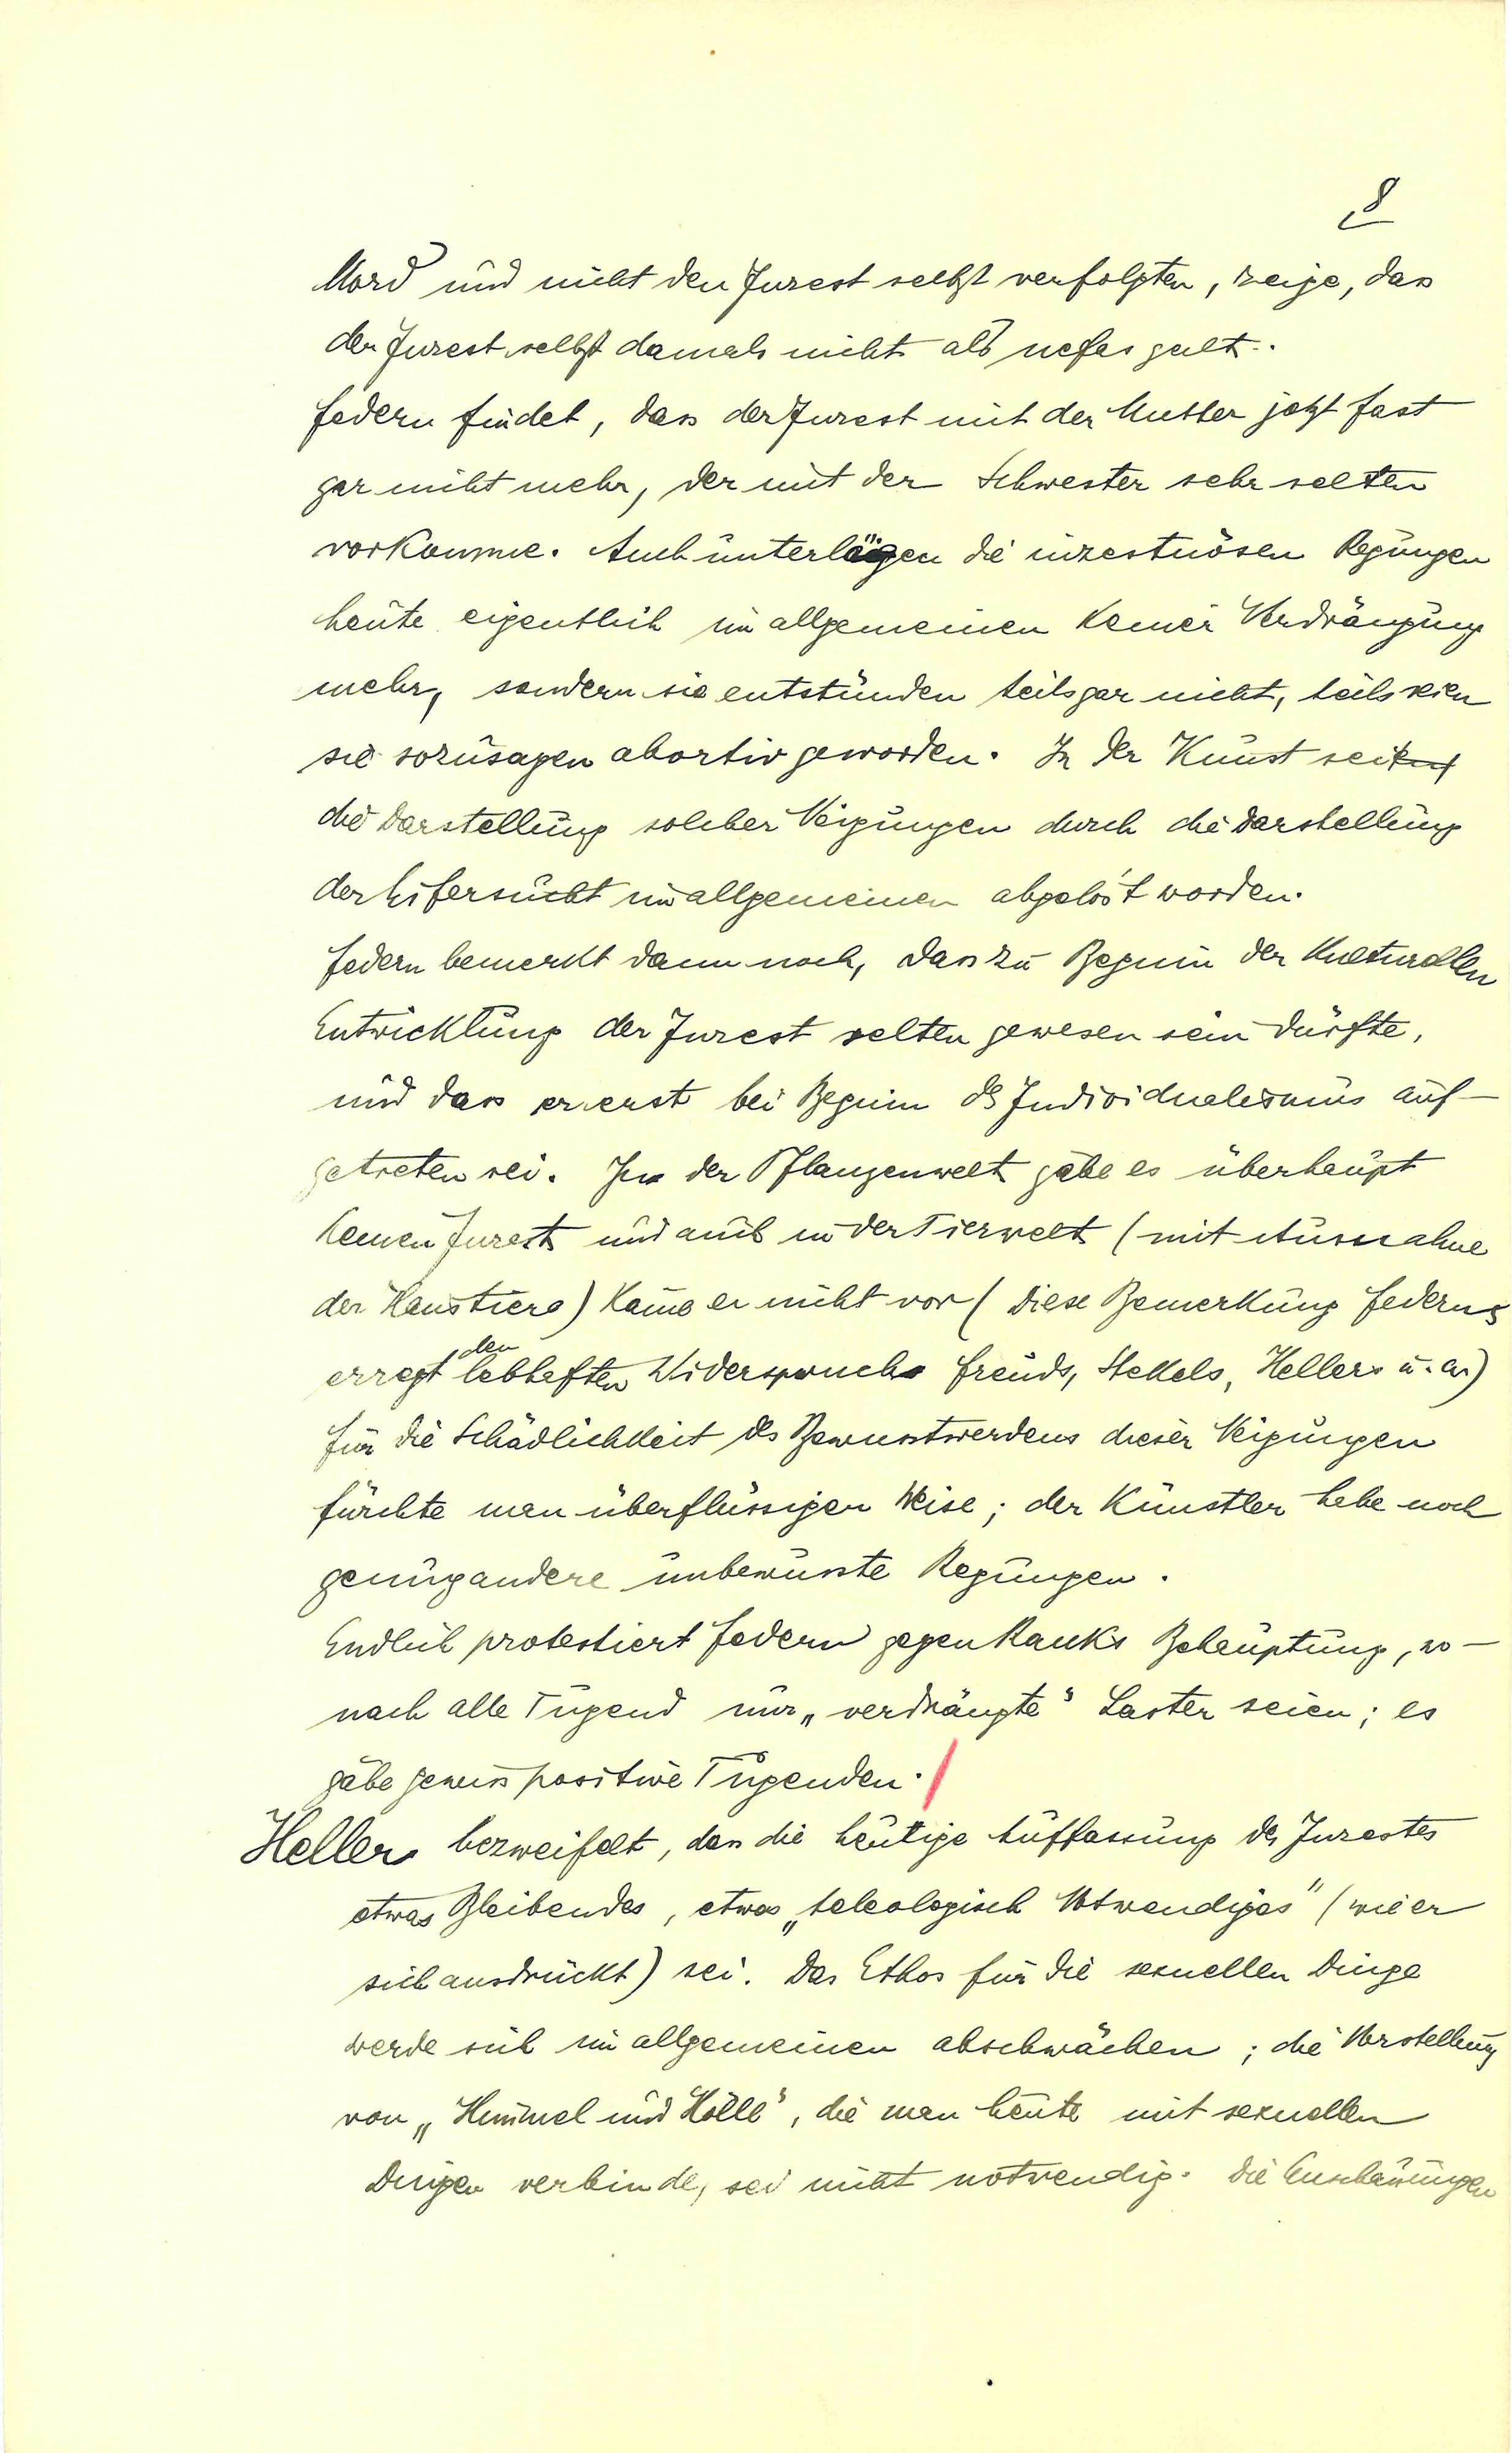 8
Mord und nicht den Inzest selbst verfolgten, zeige, dass
der Inzest selbst damals nicht als nefas galt.
Federn findet, dass der Inzest mit der Mutter jetzt fast
gar nicht mehr, der mit der Schwester sehr selten
vorkomme. Auch unterlägen die inzestuösen Regungen
heute eigentlich im allgemeinen keiner Verdrängung
mehr, sondern sie entstünden teils gar nicht, teils seien
sie sozusagen abortiv geworden. In der Kunst sei
die Darstellung solcher Neigungen durch die Darstellung
der Eifersucht im allgemeinen abgelöst worden.
Federn bemerkt dann noch, dass zu Beginn der kulturellen
Entwicklung der Inzest selten gewesen sein dürfte,
und dass er erst bei Beginn des Individualismus auf-
getreten sei. In der Pflanzenwelt gäbe es überhaupt
keinen Inzest und auch in der Tierwelt (mit Ausnahme
der Haustiere) käme er nicht vor (diese Bemerkung Federns
erregt den lebhaften Widerspruch Freuds, Stekels, Hellers u. a.)
für die Schädlichkeit des Bewusstwerdens dieser Neigungen
fürchte man überflüssiger Weise; der Künstler habe noch
genug andere unbewusste Regungen.
Endlich protestiert Federn gegen Ranks Behauptung, wo-
nach alle Tugend nur „verdrängte“ Laster seien; es
gäbe gewiss positive Tugenden.
Heller bezweifelt, dass die heutige Auffassung des Inzestes
etwas Bleibendes, etwas „teleologisch Notwendiges“ (wie er
sich ausdrückt) sei. Das Ethos für die sexuellen Dinge
werde sich im allgemeinen abschwächen; die Vorstellung
von „Himmel und Hölle“, die man heute mit sexuellen
Dingen verbinde, sei nicht notwendig. Die Anschauungen